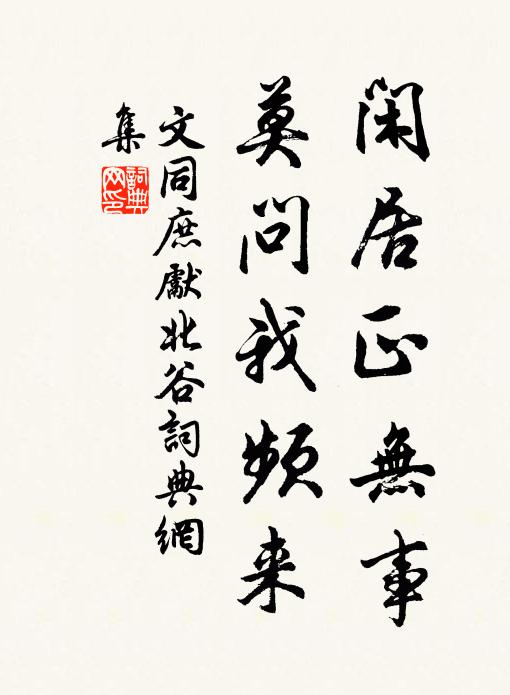 閑居正無事
莫問我頻来
文同庶獻北谷詞典網
集
詞典網印